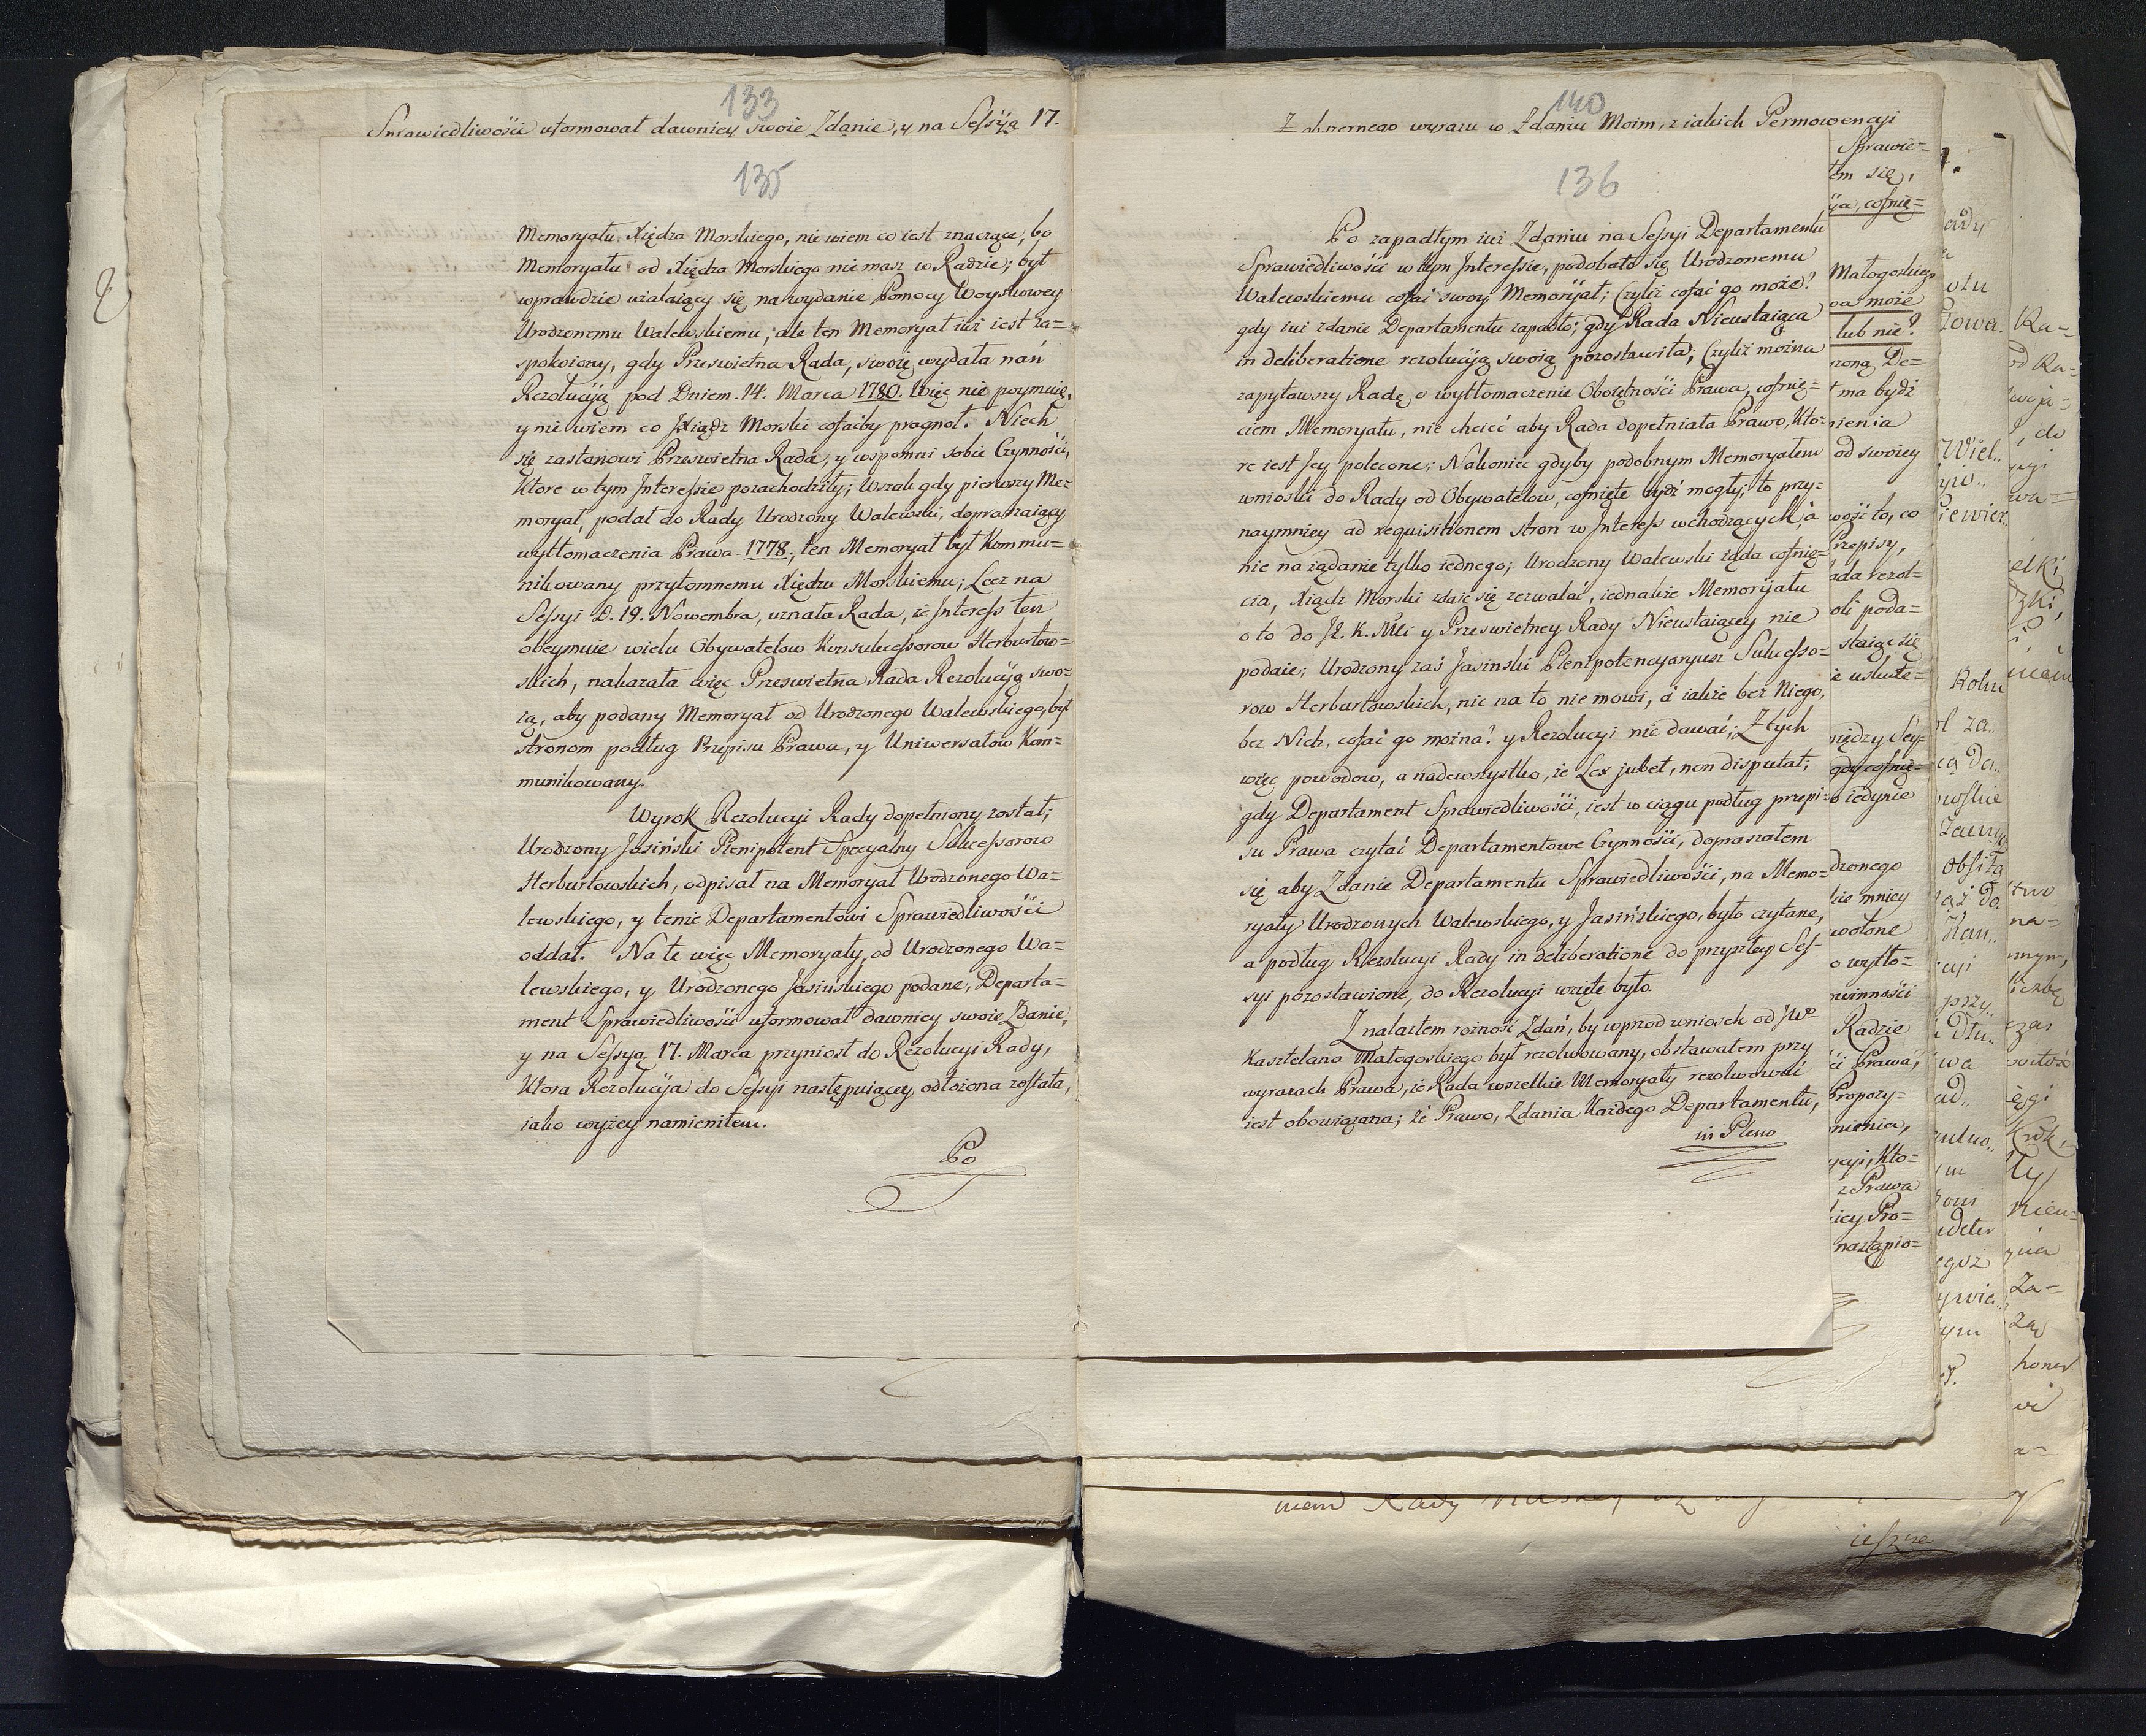 133
Sprawiedliwości uformował dawniey swoie Zdanie, y na Sessyą 17.
135
Memoryału Xiędza Morskiego, nie wiem co iest znaczące, bo
Memoryału od Xiędza Morskiego nie masz w Radzie; był
wprawdzie użalaiący się na wydanie Pomocy Woyskowey
Urodzonemu Walewskiemu, ale ten Memoryał iuż iest za=
spokoiony, gdy Prześwietna Rada, swoię wydała nań
Rezolucyją pod Dniem 14. Marca 1780. Więc nie poymuię,
y nie wiem co Xiądz Morski cofaćby pragnoł. Niech
się zastanowi Prześwietna Rada, y wspomni sobie Czynności,
Ktore w tym Interessie pozachodziły; Wszak gdy pierwszy Me=
moryał, podał do Rady Urodzony Walewski, dopraszaiący
wytłomaczenia Prawa 1778; ten Memoryał był Kommu=
nikowany przytomnemu Xiędzu Morskiemu; Lecz na
Sessyi D. 19. Nowembra, uznała Rada, że Interess ten
obeymuie wielu Obywatelow Konsukcessorow Herburtow=
skich, nakazała więc Prześwietna Rada Rezolucyją swo=
ią, aby podany Memoryał od Urodzonego Walewskiego, był
stronom podług Przepisu Prawa, y Uniwersałow Kom=
munikowany.
Wyrok Rezolucyi Rady dopełniony został;
Urodzony Jasiński Plenipotent Specyalny Sukcessorow
Herburtowskich, odpisał na Memoryał Urodzonego Wa=
lewskiego, y tenże Departamentowi Sprawiedliwości
oddał. Na te więc Memoryały, od Urodzonego Wa=
lewskiego, y Urodzonego Jasińskiego podane, Departa=
ment Sprawiedliwości uformował dawniey swoie Zdanie,
y na Sessyą 17. Marca przyniosł do Rezolucyi Rady,
Ktora Rezolucyja do Sessyi następuiącey odłożona została,
iako wyżey namieniłem.
Po
140
Z obszernego wyrazu w Zdaniu Moim, z iakich Permowencyi
136
Po zapadłym iuż Zdaniu na Sessyi Departamentu
Sprawiedliwości w tym Interessie, podobało się Urodzonemu
Walewskiemu cofać swoy Memoryjał; Czyliż cofać go może?
gdy iuż zdanie Departamentu zapadło; gdy Rada Nieustaiąca
in deliberatione rezolucyją swoią pozostawiła; Czyliż można
zapytawszy Radę, o wytłomaczenie Obojętności Prawa, cofnię=
ciem Memoryału, nie chcieć aby Rada dopełniała Prawo, Kto=
re iest Jey polecone; Nakoniec gdyby podobnym Memoryałem
wnioski do Rady od Obywatelow, cofnięte bydź mogły; to przy=
naymniey ad requisitionem stron w Interess wchodzących, a
nie na żądanie tylko iednego; Urodzony Walewski żąda cofnię=
cia, Xiądz Morski zdaie się zezwalać, iednakże Memoryjału
o to do J. K. Mci y Prześwietney Rady Nieustaiącey nie
podaie; Urodzony zaś Jasinski Plenipotencyaryusz Sukcesso=
row Herburtowskich, nic na to nie mowi, a iakże bez Niego,
bez Nich, cofać go można? y Rezolucyi nie dawać; Z tych
więc powodow, a nadewszystko, że Lex jubet, non disputat;
gdy Departament Sprawiedliwości, iest w ciągu podług przepi=
su Prawa czytać Departamentowe Czynności, dopraszałem
się aby Zdanie Departamentu Sprawiedliwości, na Memo=
ryały Urodzonych Walewskiego, y Jasińskiego, było czytane,
a podług Rezolucyi Rady in deliberatione do przyszłey Ses=
syi pozostawione, do Rezolucyi wzięte było.
Znalazłem rożność Zdań, by wprzod wniosek od JWo
Kasztelana Małogoskiego był rezolwowany, obstawałem przy
wyrazach Prawa, że Rada wszelkie Memoryały rezolwować
iest obowiązana; że Prawo, Zdania Każdego Departamentu,
in Pleno
Sprawie=
tem się,
cofnię=
Małogoskiego
może
lub nie?
De=
ma bydź
od swoiey
to, co
Przepisy,
poda=
staiąc się
między Sey=
gdy cofnię=
iedynie
mniey
o wytło=
Radzie
Prawa,
Propozy=
Kto=
z Prawa
Pro=
nastąpio=
Wiel..
Rolu
za..
obsita
przy..
Ka=
od Ra=
do
na=
Za=
niem Rady
ieszze